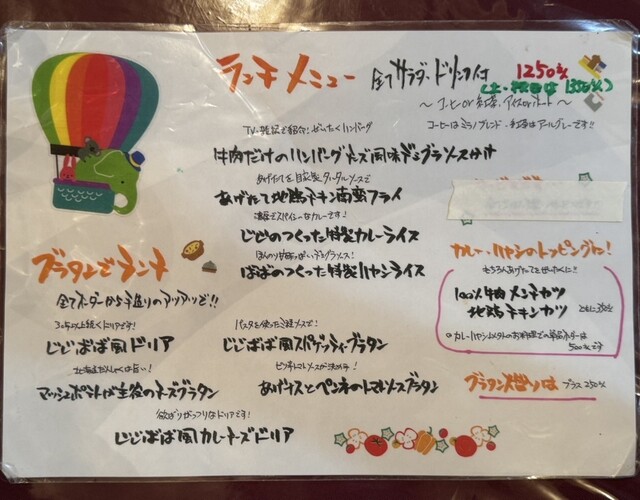 ランチメニュー 全てサラダ・ドリンク付 1250えん
(土・祝日は1350えん)
〜コーヒーor紅茶、アイスorホット〜
TV・雑誌で紹介!ぜいたくハンバーグ
コーヒーはミラノブレンド・紅茶はアールグレーです!!
牛肉だけのハンバーグチーズ風味デミグラソースかけ
あげたてを自家製タルタルソースで
あげたて地鶏チキン南蛮フライ
濃厚でスパイシーなカレーです!
じじのつくった特製カレーライス
ほんのり甘酸っぱいデミグラソース!
ばばのつくった特製ハヤシライス
グラタンでランチ
全てオーダーから手造りのアツアツで!!
カレー・ハヤシのトッピングに!
もちろんあげたてをのせたてに!!
100%牛肉メンチカツ
地鶏チキンカツ
ともに350えん
500えんです
30年以上続くドリアです!
じじばば風ドリア
パスタを使った
じじばば風スパゲッティーグラタン
北海道だんしゃくは旨い!
マッシュポテトが主役のチーズグラタン
ピリ辛トマトソースが決め手!
あげナスとペンネのトマトソースグラタン
グラタン大盛りは プラス250えん
欲ばりがっつりなドリアです!
じじばば風カレーチーズドリア